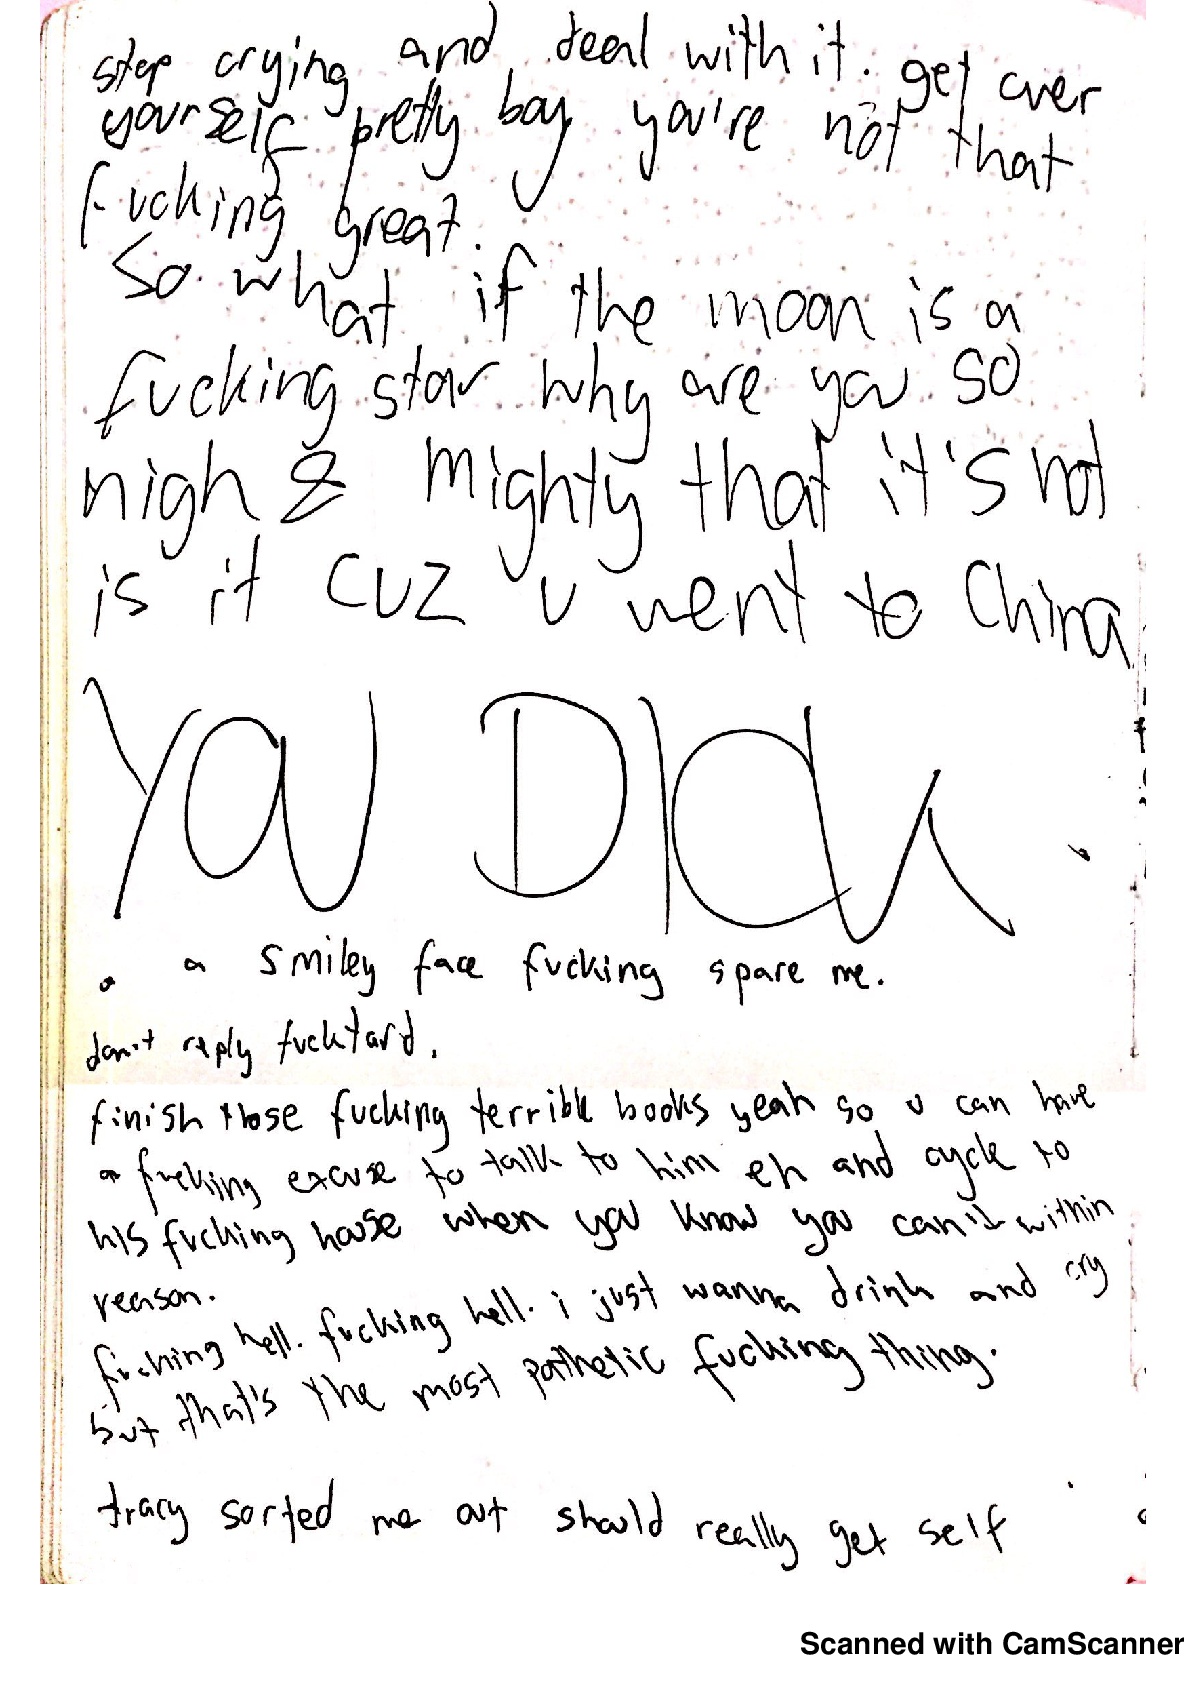 stop crying and deal with it. get over
yourself pretty boy you're not that
fucking great.
So what if the moon is a
fucking star why are you so
high & mighty that it's not
is it cuz u went to China
YOU DICK
a smiley face fucking spare me.
don't reply fucktard.
finish those fucking terrible books yeah so u can have
a fucking excuse to talk to him eh and cycle to
his fucking house when you know you can't within
reason.
fucking hell. fucking hell. i just wanna drink and cry
but that's the most pathetic fucking thing.
tracy sorted me out should really get self
Scanned with CamScanner